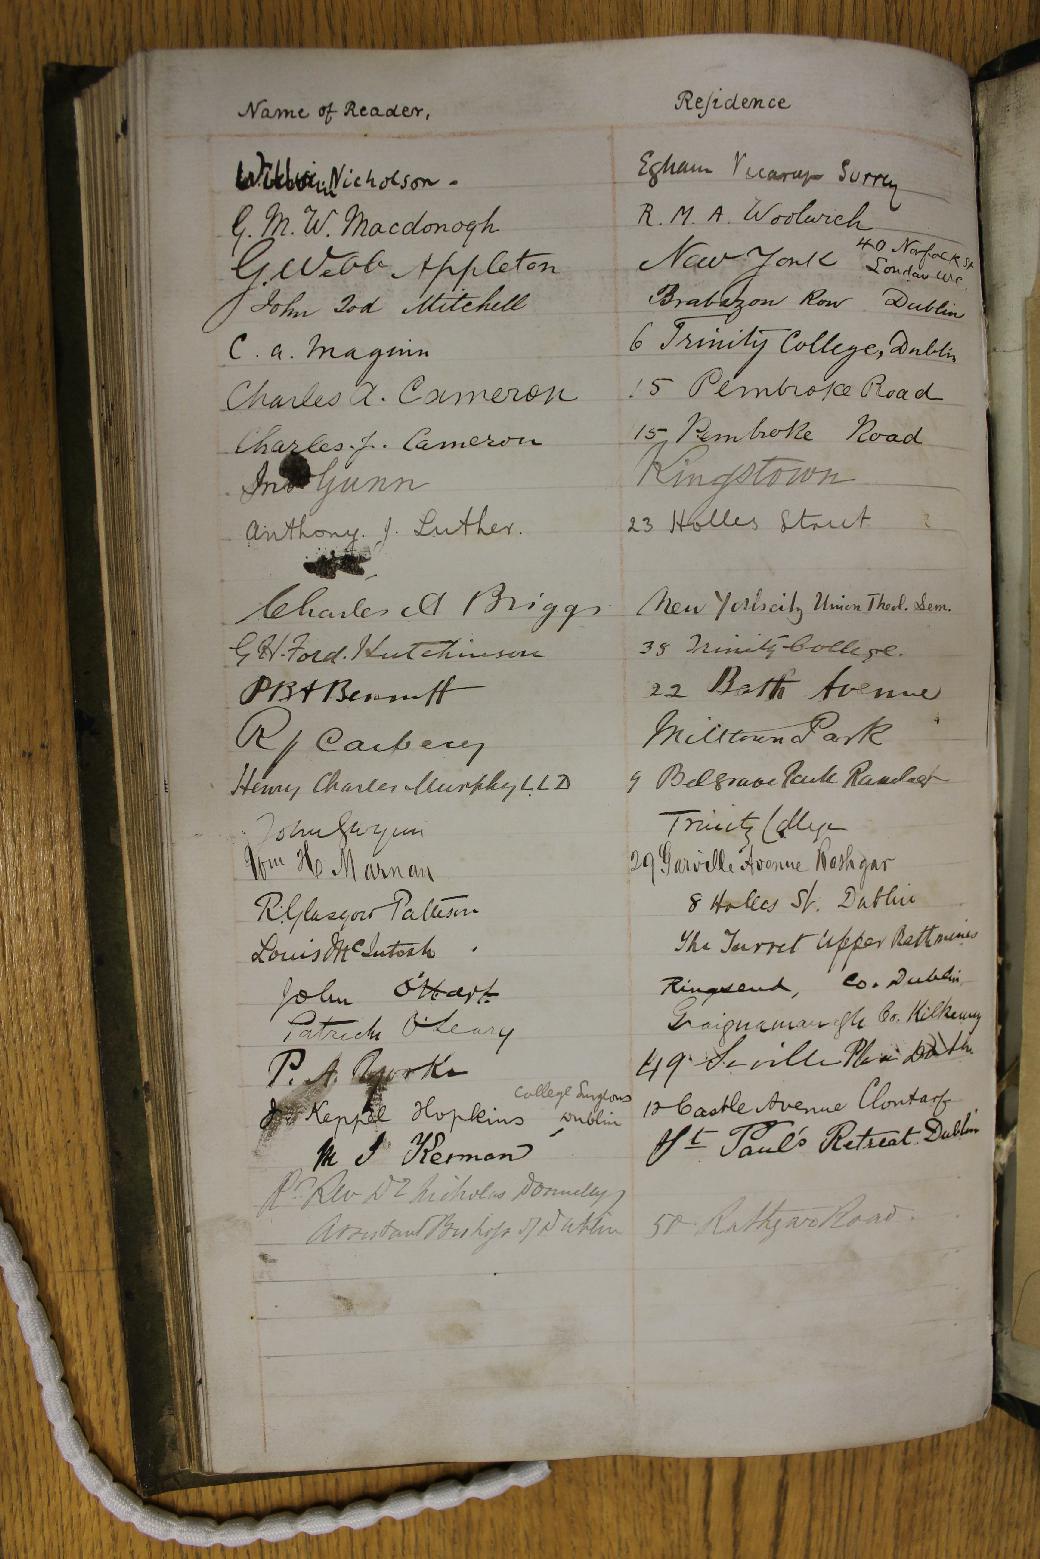 Name of Reader, Residence
William Nicholson - Egham Vicarage Surrey
G. M. W. Macdonogh R. M. A. Woolwich
G. Webb Appleton New York 40 Norfolk St
London W.C.
John Tod Mitchell Brabazon Row Dublin
C. A. Maginn 6 Trinity College, Dublin
Charles A. Cameron 15 Pembroke Road
Charles. J. Cameron 15 Pembroke Road
Jno Gunn Kingstown
Anthony. J. Luther. 23 Holles Street
Charles A Briggs New York city Union Theol. Sem.
G H. Ford. Hutchinson 38 Trinity College.
Bennett 22 Bath Avenue
R J Carbery Milltown Park
Henry Charles Murphy LLD 9 Belgrave Park
John Gwynn Trinity College
Wm H. Marnan 29 Garville Avenue Rathgar
R. Glasgow Patteson 8 Holles St. Dublin
Louis McIntosh The Turret Upper Rathmines
John O'Hart Ringsend, Co. Dublin
Patrick O'Leary Graignamanagh Co. Kilkenny
P. A. Yorke 49 Seville Place Dublin
Keppel Hopkins College Surgeons
Dublin 12 Castle Avenue Clontarf
M J Kernan St Paul's Retreat. Dublin
Rt Rev Dr Nicholas Donnelly
Assistant Bishop of Dublin 50 Rathgar Road.